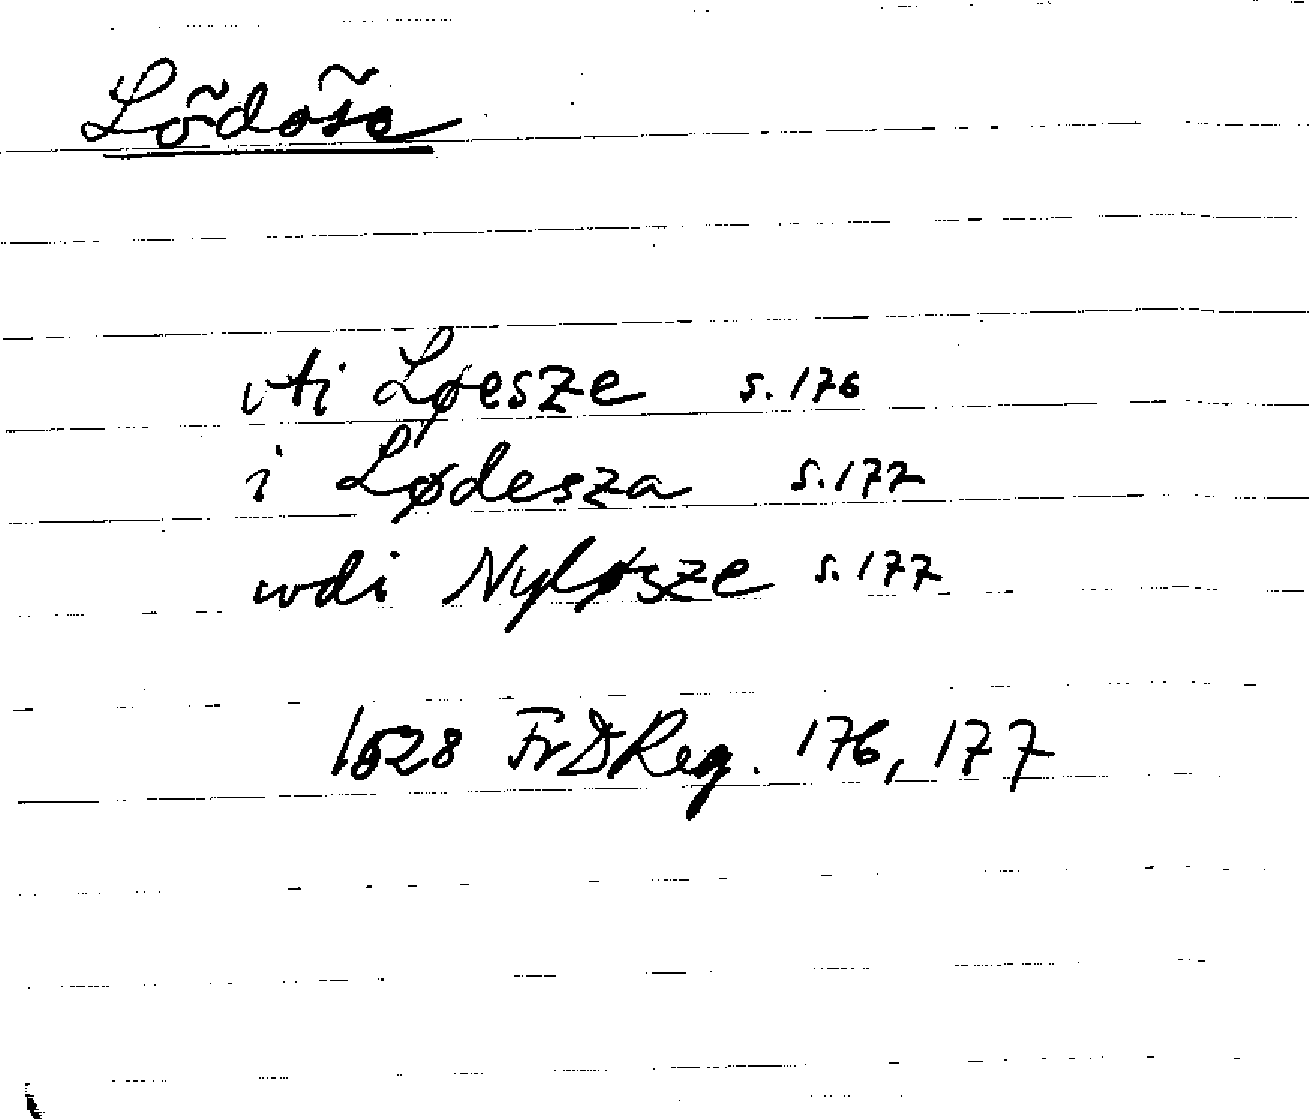 Lödöse
vti Løesze s. 176
i Lødesza s. 177
wdi Nyløsze s. 177
1528 FrDReg. 176, 177